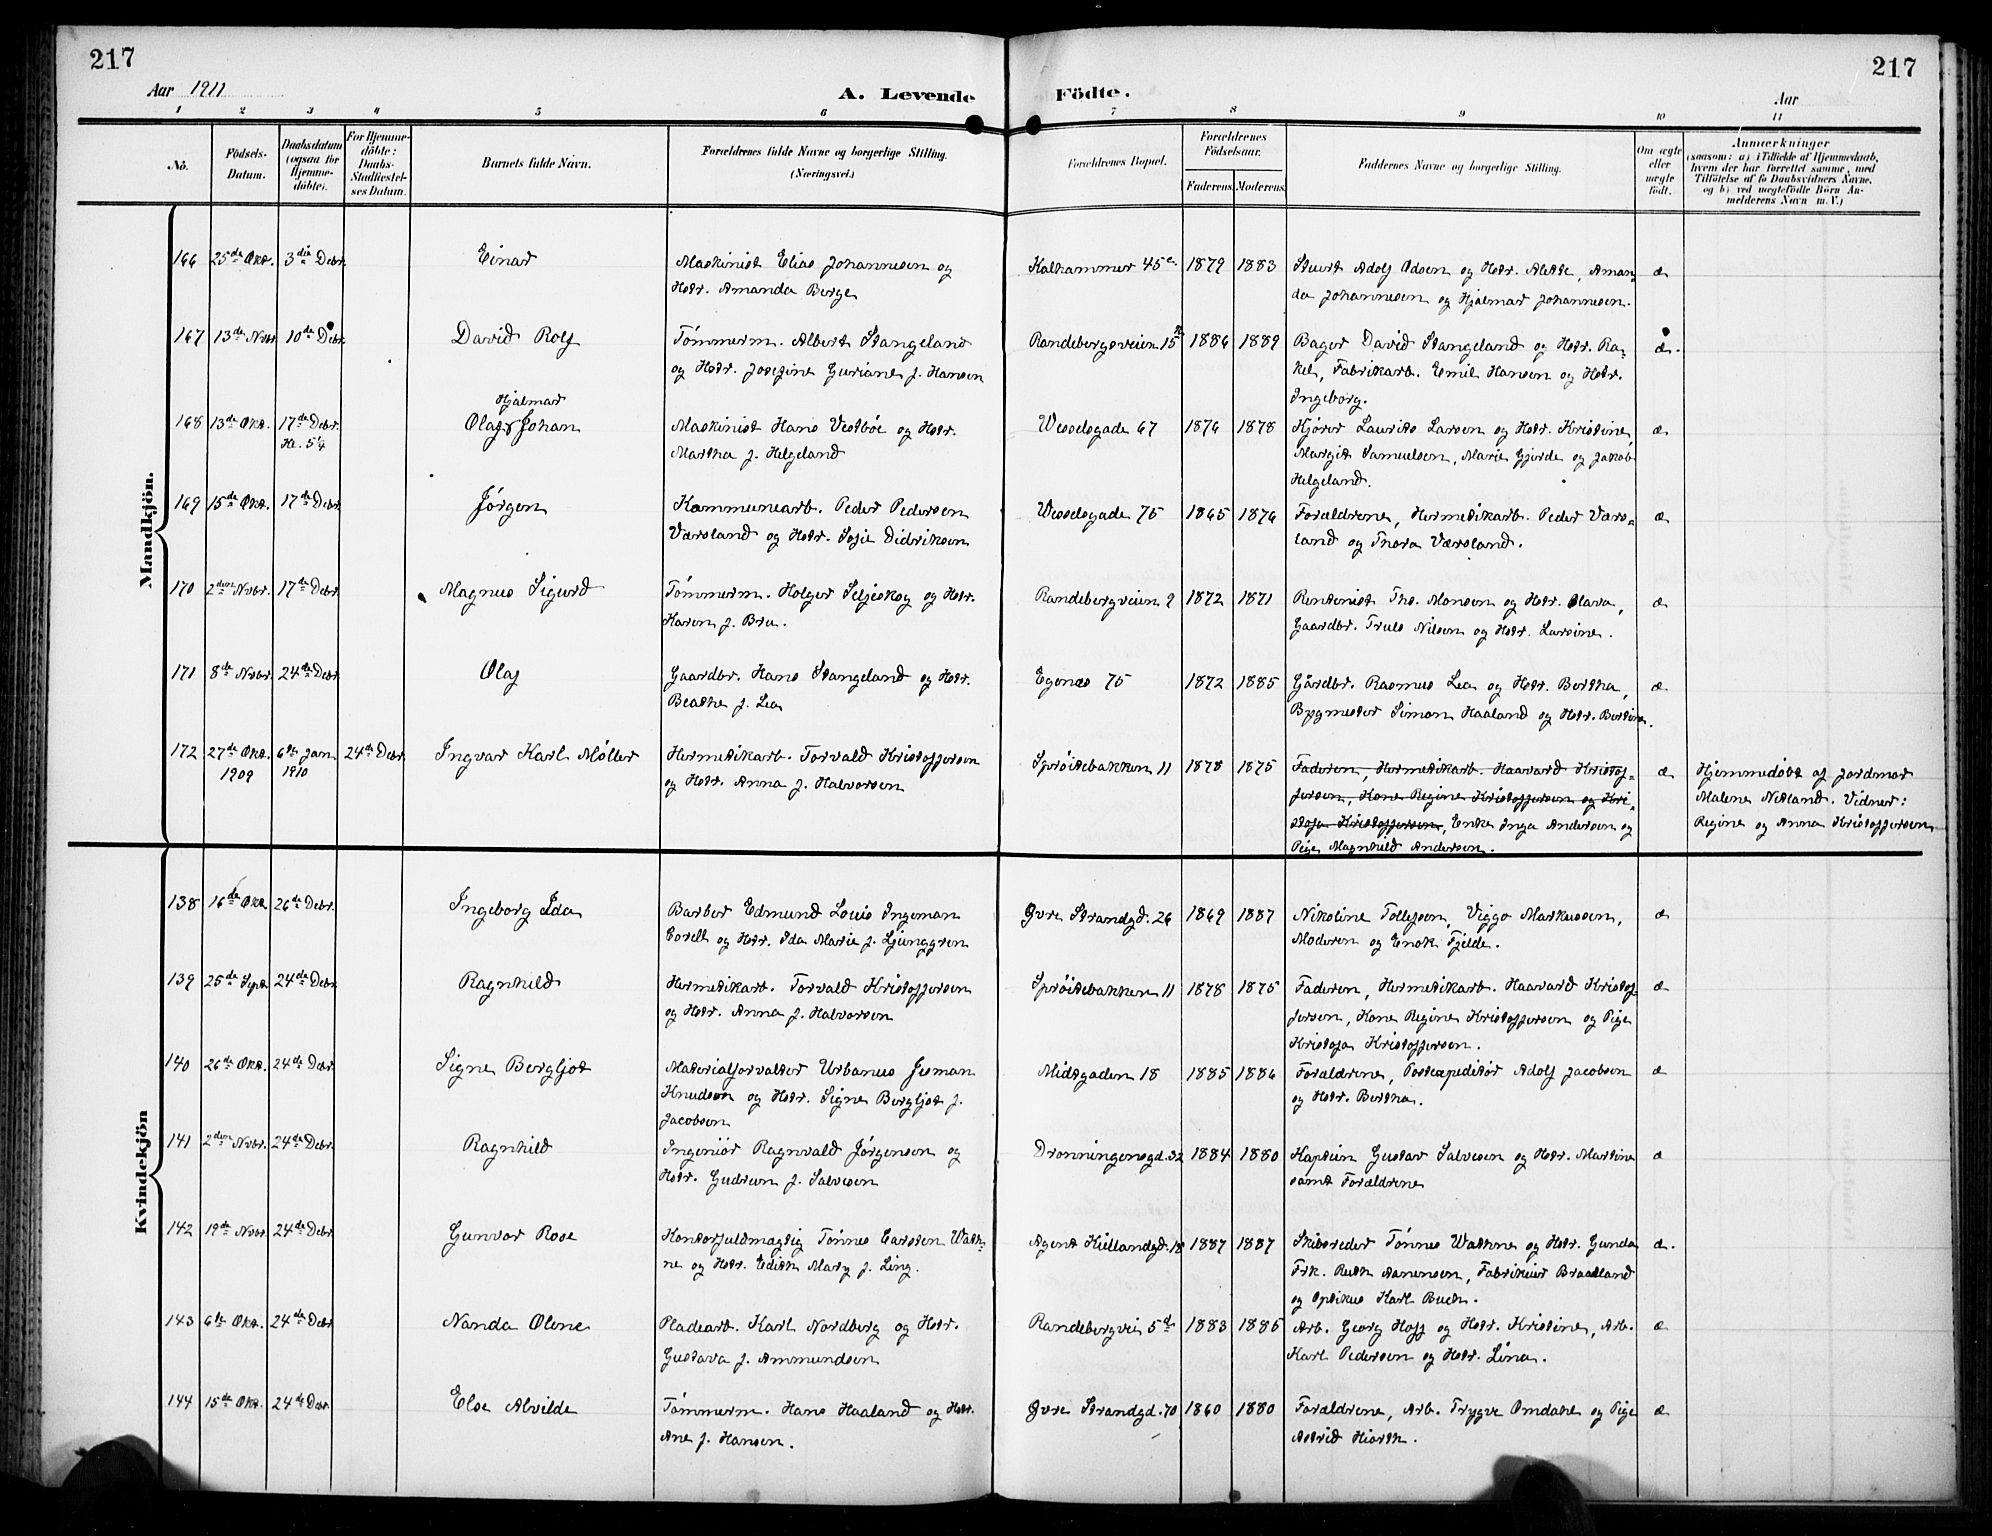 217
217
Aar 1911
A. Levende Födte.
Aar
1 2 3 4 5 6 7 8 9 10 11
No.
Födsels-Datum.
Daabsdatum (ogsaa for Hjemmedöbte).
For Hjemmedöbte: Daabs-Stadfæstelses Datum.
Barnets fulde Navn.
Forældrenes fulde Navne og borgerlige Stilling. (Næringsvei.)
Forældrenes Bopæl.
Forældrenes Födselsaar.
Faderens. Moderens.
Faddernes Navne og borgerlige Stilling.
Om ægte eller uægte födt.
Anmærkninger
(saasom: a) i Tilfælde af Hjemmedaab, hvem der har forrettet samme, med Tilföielse af to Daabsvidners Navne, og b) ved uægtefödte Börn Anmelderens Navn m. V.)
Mandkjön.
166 25de Okt. 3die Debr. Einar
Maskinist Elias Johannesen og
Hstr. Amanda Berge
Kalhammer 45 1879 1883
Stuert Adolf Odsen og Hstr. Alette, Aman-
da Johannesen og Hjalmar Johannesen.
æ
167 13de Nvbr. 10de Debr. David Rolf
Tømmerm. Albert Stangeland
og Hstr. Josefine Guriane f. Hansen
Randebergsveien 15 1886 1889
Bager David Stangeland og Hstr. Ra-
kel, Fabrikarb. Emil Hansen og Hstr.
Ingeborg.
æ.
168 13de Okt. 17de Debr. Kl. 5¼
Hjalmar
Olaf Johan
Maskinist Hans Vestbøe og Hstr.
Martha f. Helgeland
Wesselsgade 67 1876 1878
Kjører Laurits Larsen og Hstr. Kristine,
Margit Samuelsen, Marie Gjerde og Jakob
Helgeland.
æ
169 15de Okt. 17de Debr. Jørgen
Kommunearb. Peder Pedersen
Værsland og Hstr. Sofie Didriksen
Wesselsgade 75 1865 1876
Forældrene, Hermetikarb. Peder Værs-
land og Thora Værsland.
æ
170 2den Nvbr. 17de Debr. Magnus Sigurd
Tømmerm. Holger Seljeskog og Hstr.
Karen f. Bru.
Randebergveien 9 1872 1871
Rentenist Ths. Monsen og Hstr. Olava,
Gaardbr. Truls Nilsen og Hstr. Larsine.
æ
171 8de Nvbr. 24de Debr. Olaf
Gaardbr. Hans Stangeland og Hstr.
Beathe f. Lea
Egenes 75 1872 1885
Gårdbr. Rasmus Lea og Hstr. Bertha,
Bygmester Simon Haaland og Hstr. Bertine.
æ
172 27de Okt. 1909 6te Jan 1910 24de Debr. Ingvar Karl Møller
Hermetikarb. Torvald Kristoffersen
og Hstr. Anna f. Halvorsen
Sprøitebakken 11 1878 1875
Faderen, Hermetikarb. Haavard Kristof-
fersen, Kone Regine Kristoffersen og Kri-
stofa Kristoffersen, Enke Inga Andersen og
Pige Magnhild Andersen.
æ
Hjemmedøbt af Jordmor
Malene Netland. Vidner:
Regine og Anna Kristoffersen
Kvindekjön
138 16de Okt. 26de Debr. Ingeborg Ida
Barber Edmund Louis Ingeman
Corell og Hstr. Ida Marie f. Ljunggren
Øvre Strandgd. 26 1869 1887
Nikoline Tollefsen, Viggo Markussen,
Moderen og Enok Fjelde.
æ
139 25de Sept. 24de Debr. Ragnhild
Hermetikarb. Torvald Kristoffersen
og Hstr. Anna f. Halvorsen
Sprøitebakken 11 1878 1875
Faderen, Hermetikarb. Haavard Kristof-
fersen, Kone Regine Kristoffersen og Pige
Kristofa Kristoffersen.
æ
140 26de Okt. 24de Debr. Signe Bergljot
Materialforvalter Urbanus Jesman
Knudsen og Hstr. Signe Bergljot f.
Jacobsen
Midtgaden 18 1885 1886
Forældrene, Postexpeditør Adolf Jacobsen
og Hstr. Bertha.
æ
141 2den Nvbr. 24de Debr. Ragnhild
Ingeniør Ragnvald Jørgensen og
Hstr. Gudrun f. Salvesen
Dronningensgd. 32 1884 1880
Kaptein Gustav Salvesen og Hstr. Martine
samt Forældrene
æ
142 19de Nvbr. 24de Debr. Gunvor Rose
Kontorfuldmægtig Tønnes Carsten Wath-
ne og Hstr. Edith Mary f. Ling.
Agent Kiellandgd. 18 1887 1887
Skibsreder Tønnes Wathne og Hstr. Gunda
Frk. Ruth Aanensen, Fabrikeier Braadland
og Optikus Karl Buch.
æ.
143 6te Okt. 24de Debr. Nanda Olene
Pladearb. Karl Nordberg og Hstr.
Gustava f. Ammundsen
Randebergvei 5 1883 1885
Arb. Georg Hoff og Hstr. Kristine, Arb.
Karl Pedersen og Hstr. Lina.
æ
144 15de Okt. 24de Debr. Else Alvilde
Tømmerm. Hans Haaland og Hstr.
Ane f. Hansen.
Øvre Strandgd. 70 1860 1880
Forældrene, Arb. Trygve Omdahl og Pige
Astrid Hiorth.
æ